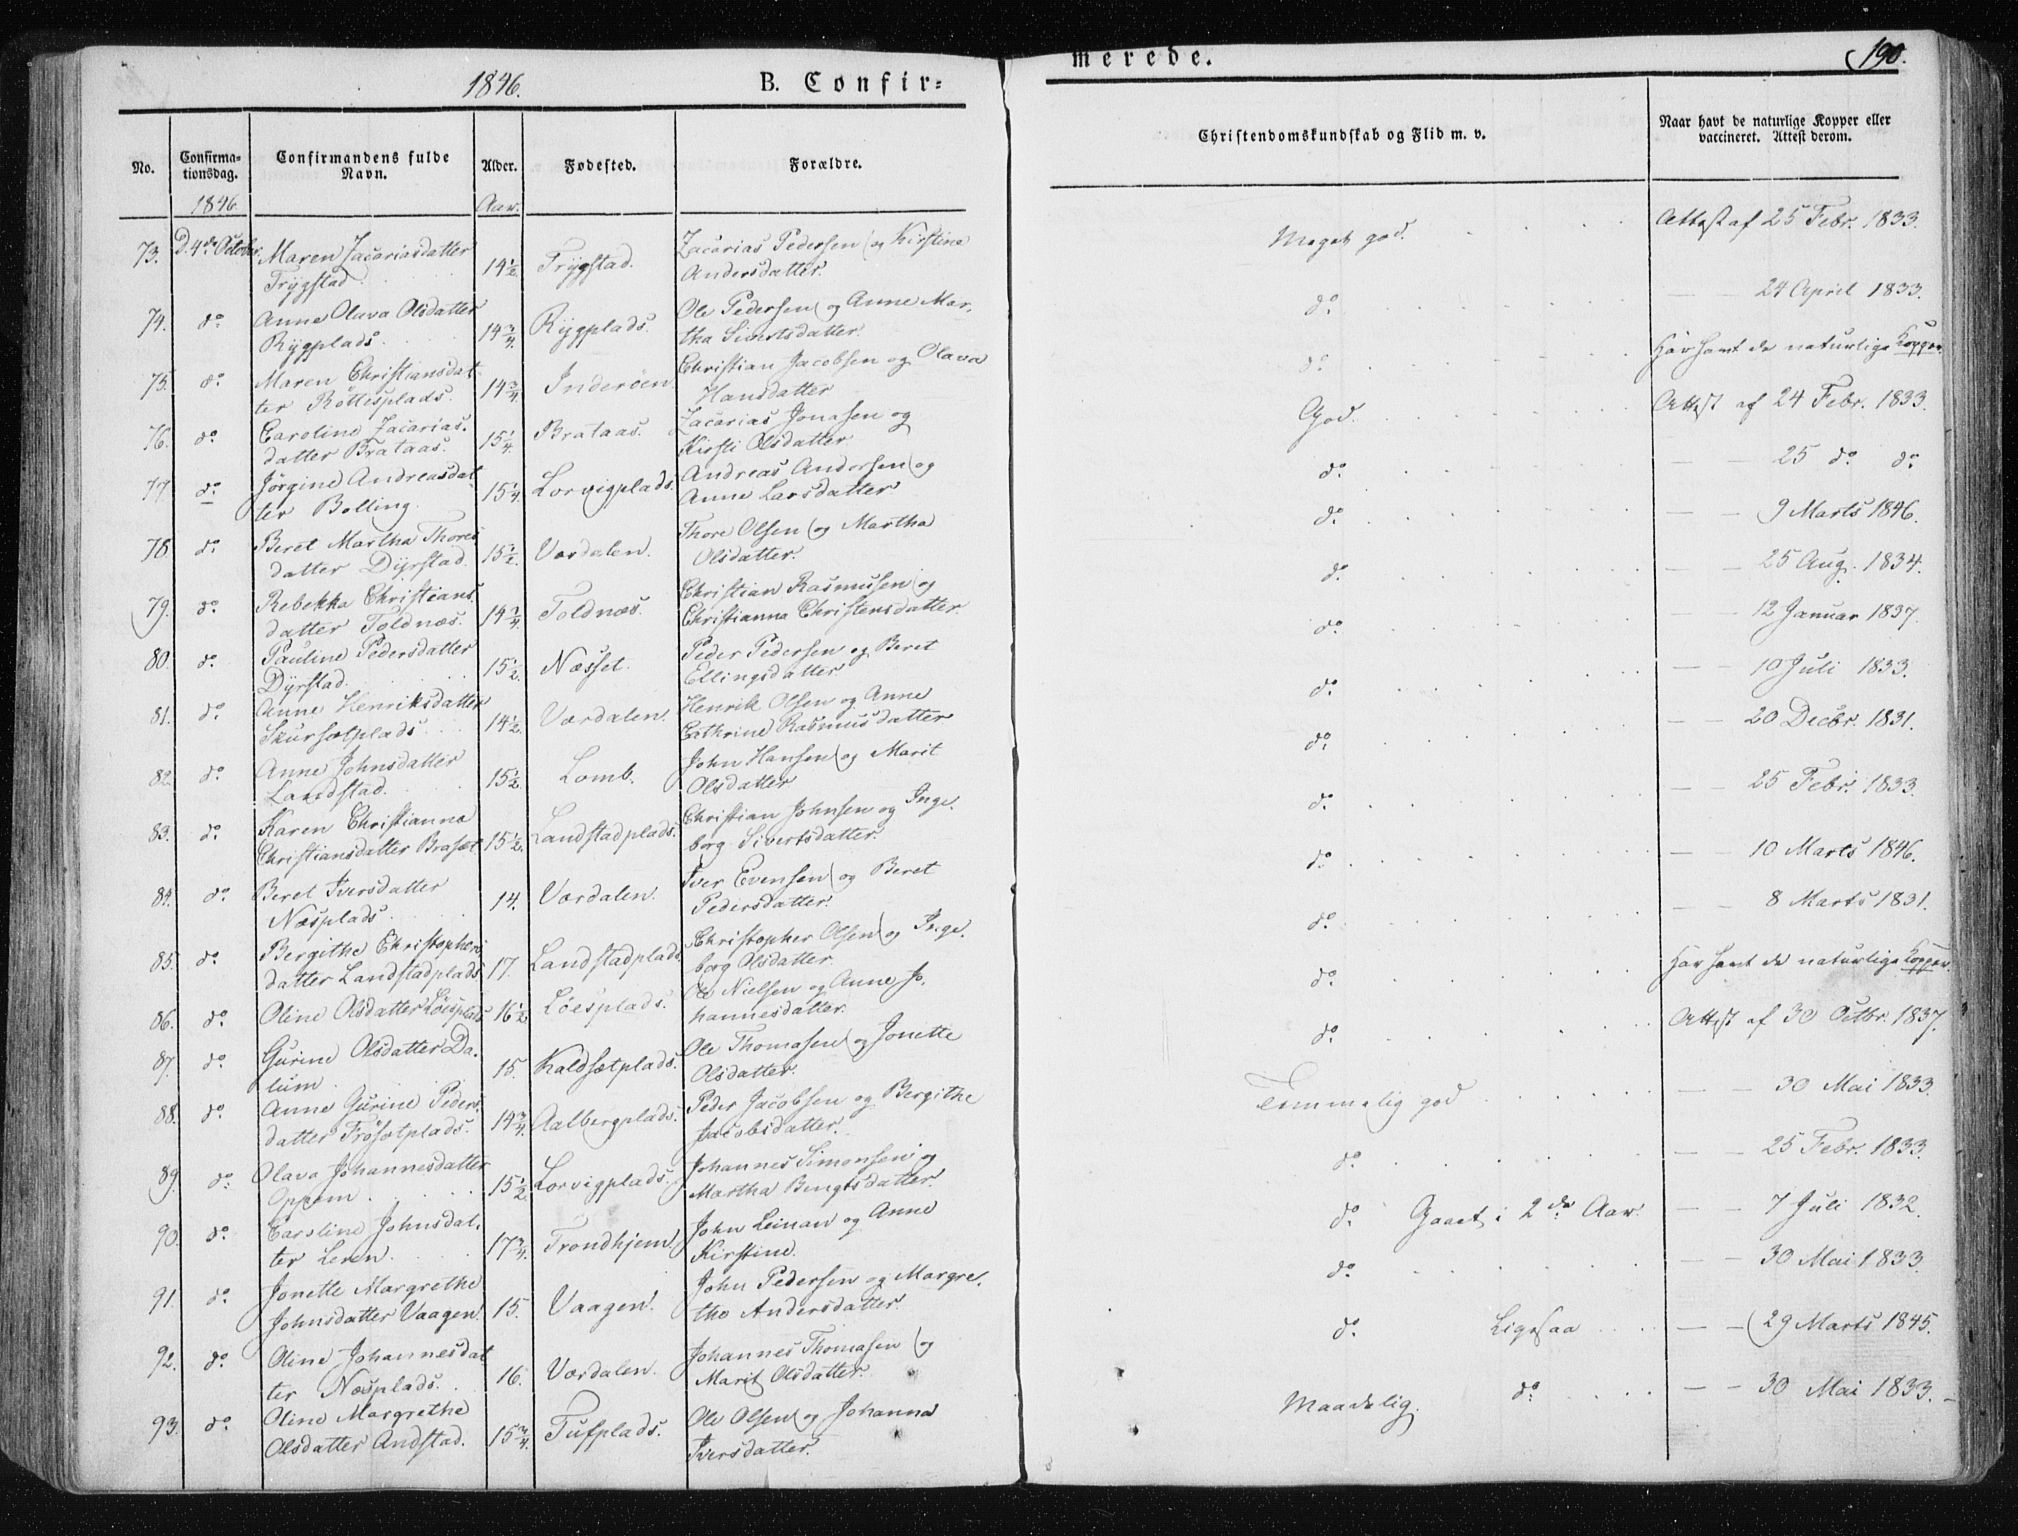 1846.
B. Confir=
merede.
190.
No.
Confirma-
tionsdag.
Confirmandens fulde
Navn.
Alder.
Fødested.
Forældre.
Christendomskundskab og Flid m. v.
Naar havt de naturlige Kopper eller
vaccineret. Attest derom.
1846
Aar.
73. D. 4de October Maren Zacariasdatter 14 1/2 Trygstad. Zacarias Pedersen og Kirstine
Trygstad. Andersdatter.
Meget god. Attest af 25 Febr. 1833.
74. do Anne Olava Olsdatter 14 3/4 Rygplads. Ole Pedersen og Anne Mar-
Rygplads. tha Simonsdatter
do — — 24 April 1833.
75. do Maren Christiansdat- 14 3/4 Inderøen. Christian Jacobsen og Olava
ter Röttesplads. Hansdatter
do Har havt de naturlige Kopper.
76. do Caroline Zacarias- 15 1/4 Brataas. Zacarias Jonasen og
datter Brataas. Kirsti Olsdatter
God. Attest af 24 Febr. 1833.
77. do Jørgine Andreasdat- 15 1/4 Lorvigplads. Andreas Andersen og
ter Bolling. Anne Larsdatter
do — — 25 do do
78. do Beret Martha Thores 15 1/2 Værdalen. Thore Olsen og Martha
datter Dyrstad. Olsdatter.
do — — 9 Marts 1846.
79. do Rebekka Christians- 14 3/4 Toldnæs. Christian Rasmusen og
datter Toldnæs. Christianna Christensdatter
do — — 25 Aug. 1834.
80. do Pauline Pedersdatter 15 1/2 Næsset. Peder Pedersen og Beret
Dyrstad. Ellingsdatter
do — — 12 Januar 1837.
81. do Anne Henriksdatter 14 1/2 Værdalen. Henrik Olsen og Anne
Skursætplads. Cathrine Rasmusdatter
do — — 10 Juli 1833.
82. do Anne Johnsdatter 15 1/2 Lomb. John Hansen og Marit
Landstad. Olsdatter
do — — 20 Decbr. 1831.
83. do Karen Christianna 15 1/2 Landstadplads. Christian Johnsen og Inge-
Christiansdatter Brasæt borg Sivertsdatter
do — — 25 Febr. 1833.
84. do Beret Iversdatter 14. Værdalen. Iver Evensen og Beret
Næsplads. Pedersdatter.
do — — 10 Marts 1846.
85. do Bergithe Christophers- 17. Landstadplads. Christopher Olsen og Inge-
datter Landstadplads borg Olsdatter.
do — — 8 Marts 1831.
86. do Oline Olsdatter Löesplads 16 1/2 Löesplads. Ole Nielsen og Anne Jo-
hannesdatter.
do Har havt de naturlige Kopper.
87. do Gurine Olsdatter Da- 15. Kaldsætplads. Ole Thomasen og Jonette
lum. Olsdatter.
do Attest af 30 Octbr. 1837.
88. do Anne Gurine Peders- 14 3/4 Aalbergplads. Peder Jacobsen og Bergithe
datter Frösætplads. Jacobsdatter.
Temmelig god — — 30 Mai 1833.
89. do Olava Johannesdatter 15 1/2 Lorvigplads. Johannes Simonsen og
Oppem. Martha Bengtsdatter.
do — — 25 Febr. 1833.
90. do Caroline Johnsdat- 17 3/4 Trondhjem. John Leinan og Anne
ter Leren. Kirstine.
do Gaaet i 2de Aar. — — 7 Juli 1832.
91. do Jonette Margrethe 15. Vaagen. John Pedersen og Margre-
Johnsdatter Vaagen. the Andersdatter.
do — — 30 Mai 1833.
92. do Oline Johannesdat- 16. Værdalen. Johannes Thomasen og
ter Næsplads. Marit Olsdatter.
do Ligesaa — — 29 Marts 1845.
93. do Oline Margrethe 15 3/4 Tufplads. Ole Olsen og Johanna
Olsdatter Andstad. Iversdatter.
Maadelig. do — — 30 Mai 1833.